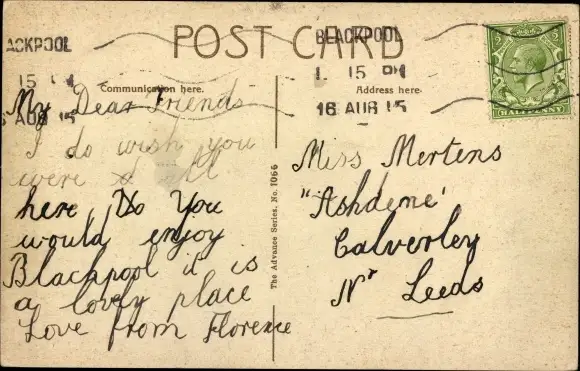 POST CARD
BLACKPOOL
1. 15 PM
16 AUG 15
ACKPOOL
15 PM
AUG 15
HALFPENNY
Communication here.
Address here.
My Dear Friends
I do wish you
were all
here, Do You
would enjoy
Blackpool it is
a lovely place
Love from Florence
The Advance Series, No. 1066
Miss Mertens
"Ashdene'
Calverley
Nr Leeds